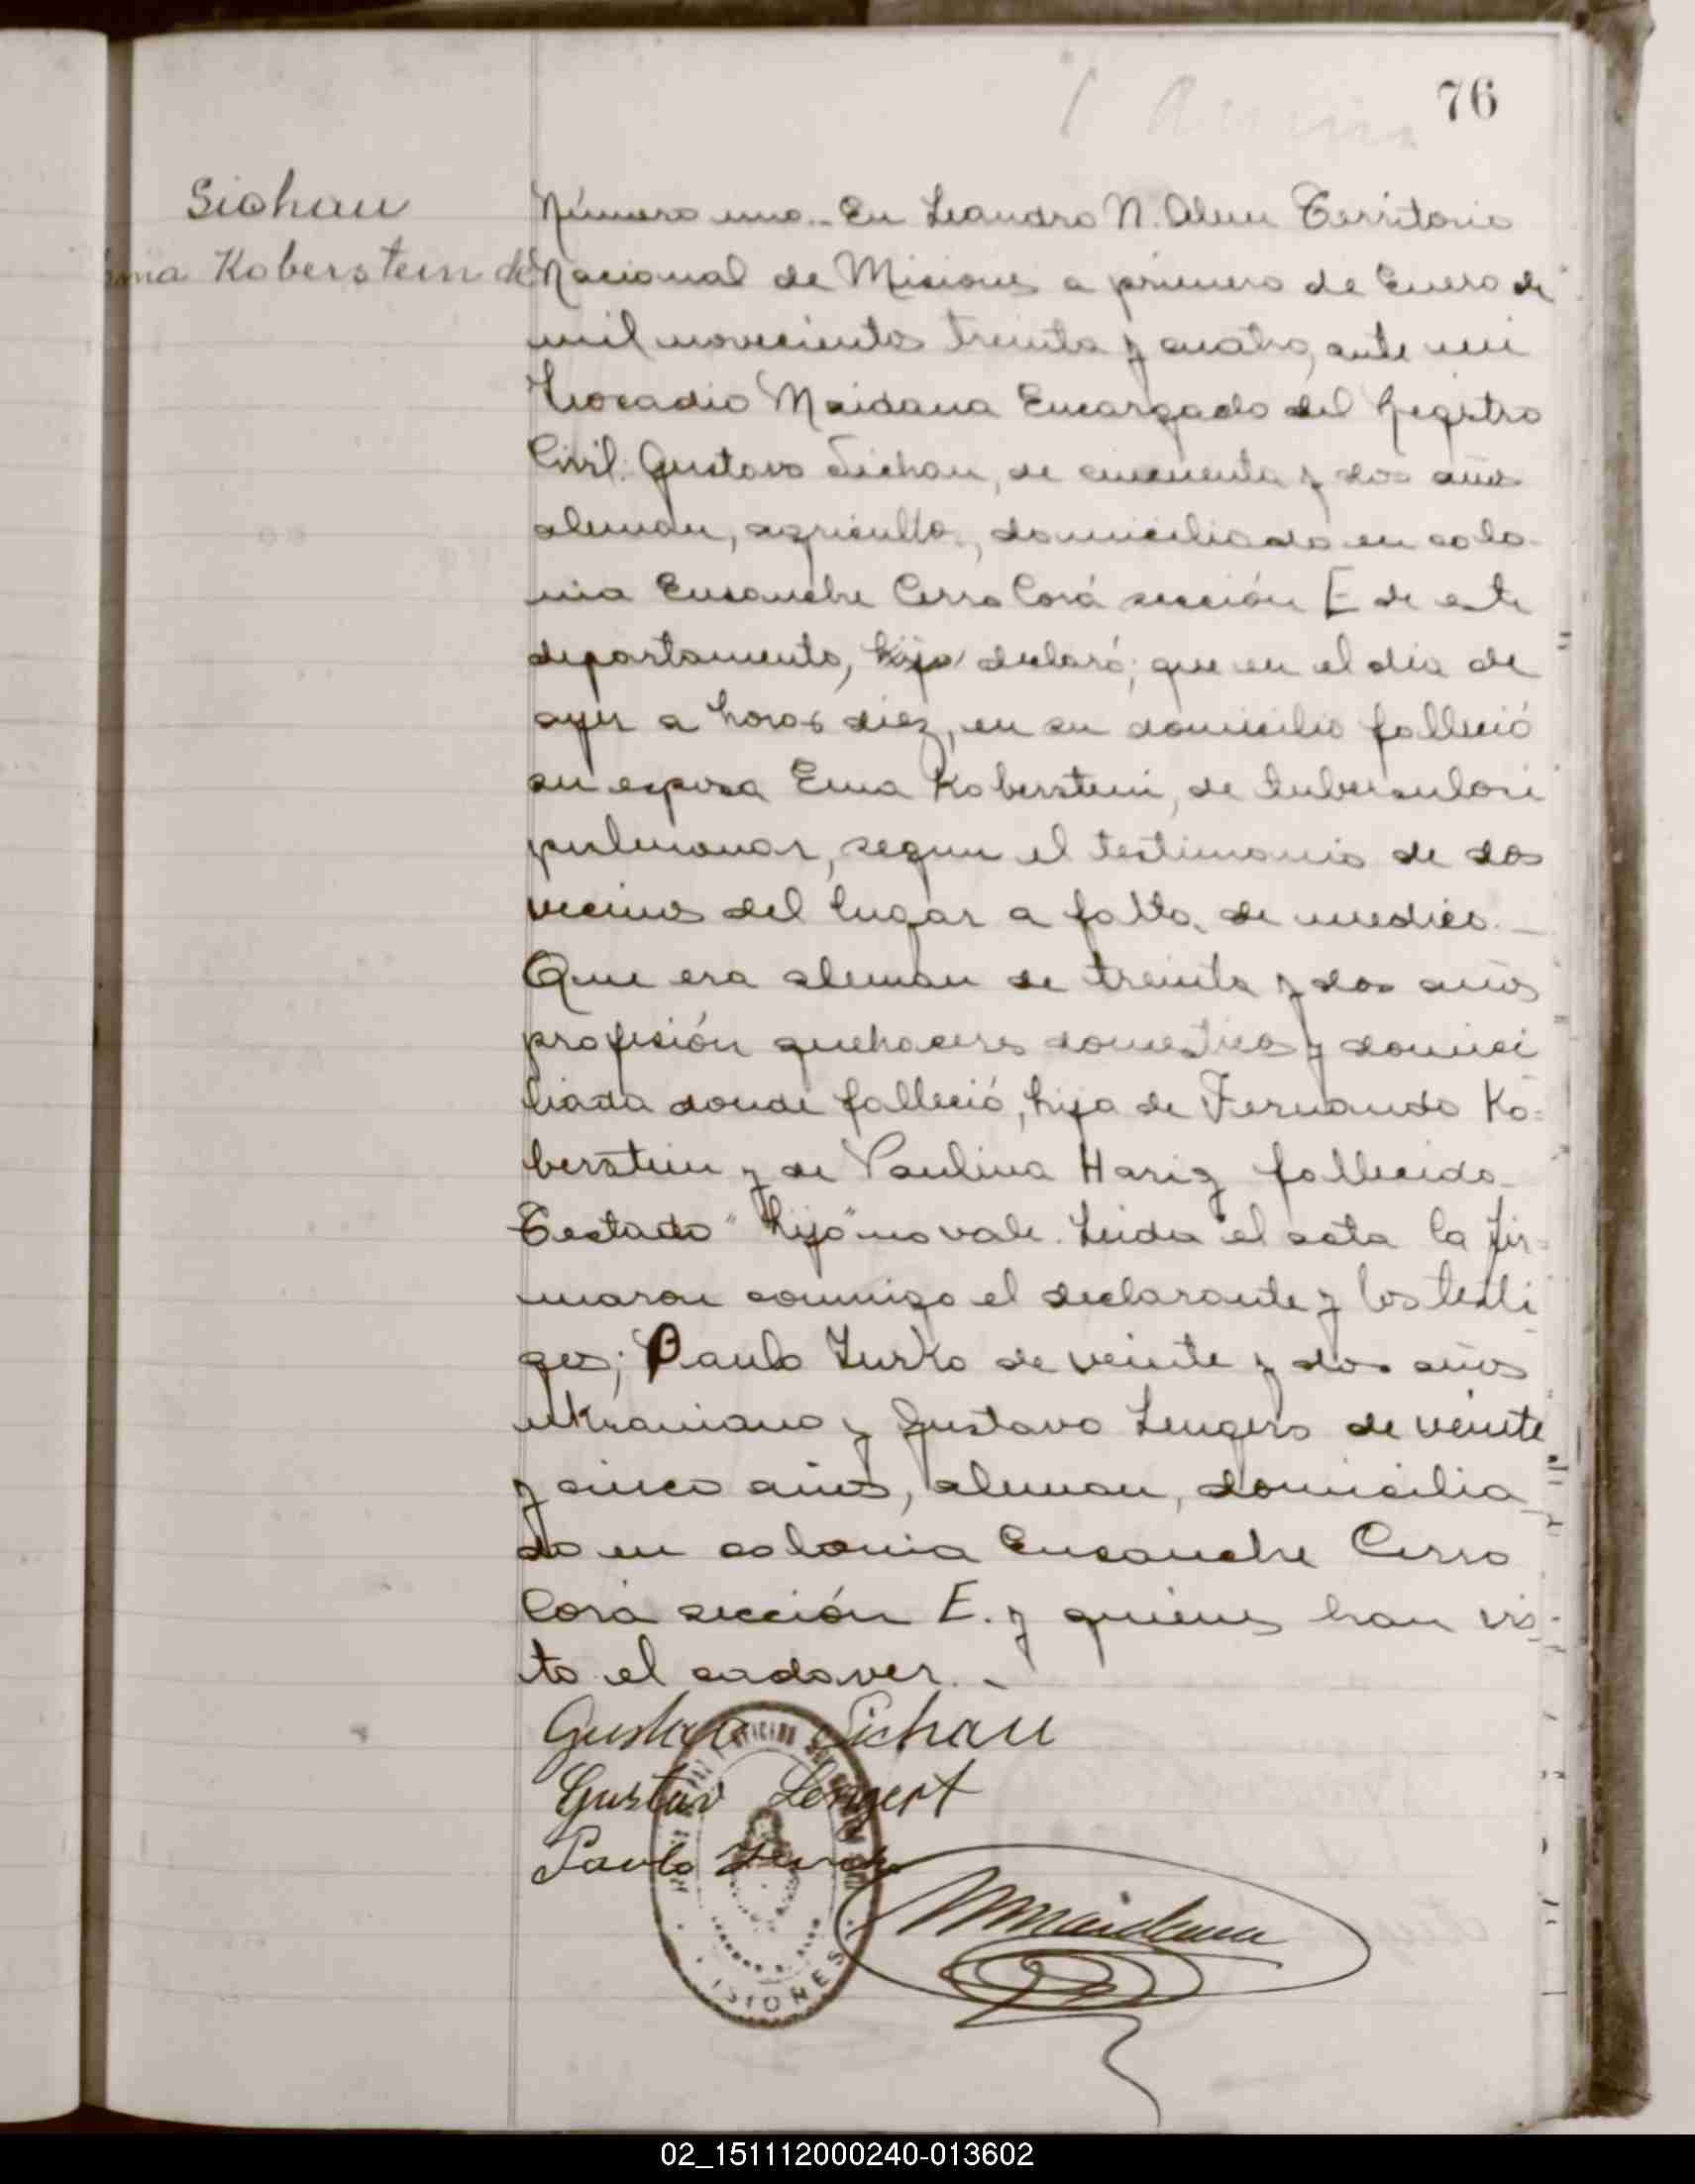 76
Sichau
Koberstein de
Número uno.- En Leandro N. Alem Territorio
Nacional de Misiones a primero de Enero de
mil novecientos treinta y cuatro, ante mi
Leocadio Maidana Encargado del Registro
Civil. Gustavo Sichau, de cincuenta y dos años
aleman, agricultor, domiciliado en colo-
nia Ensanche Cerro Corá sección E de este
departamento, hijo declaró; que en el dia de
ayer a horas diez, en su domicilio falleció
su esposa Ema Koberstein, de tuberculosi
pulmonar, segun el testimonio de dos
vecinos del lugar a falta de medico.-
Que era aleman de treinta y dos años
profesión quehaceres domesticos y domici
liada donde falleció, hija de Fernando Ko=
berstein y de Paulina Hariz fallecido-
Testado "hijo" no vale. Leida el acta la fir=
maron conmigo el declarante y los testi
gos; Paulo Zurko de veinte y dos años
ukraniano y Gustavo Lengers de veinte
y cinco años, aleman, domicilia
do en colonia Ensanche Cerro
Corá sección E. y quienes han vis-
to el cadaver.-
Gustavo Sichau
Gustav Lengert
Paulo
Maidana
MISIONES
02_151112000240-013602